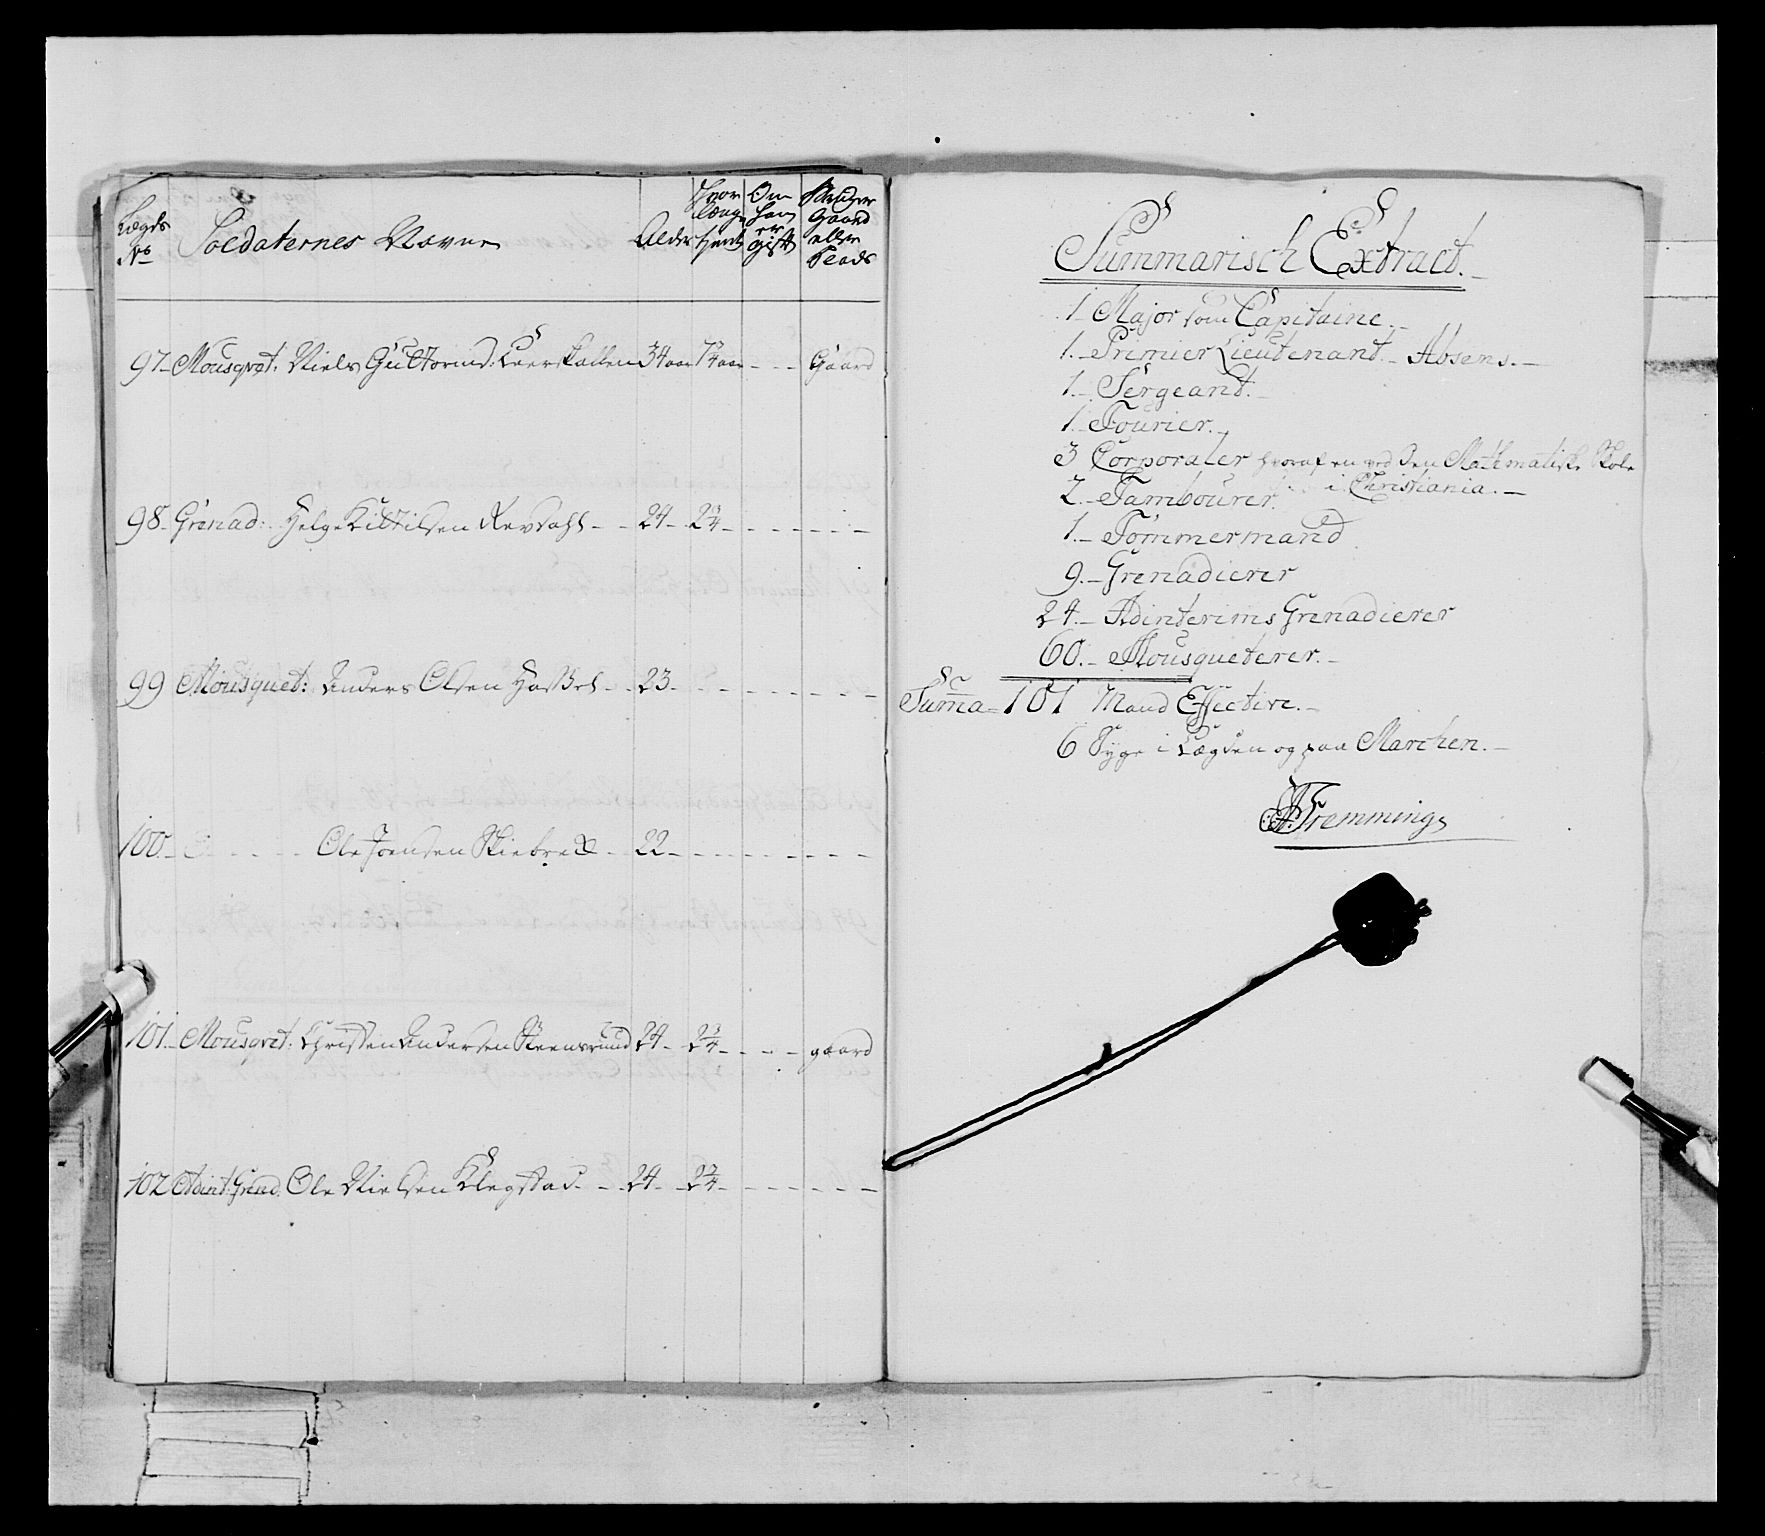 Lægds No Soldaternes Navne Alder Hvor længe tient Om han er gift Bruger Gaard eller Plads
97 Mousqvet: Niels Guttormd: Leerskallen 34 aar 7¾ aar - - - Gaard
98 Grenad: Helge Kittilsen Revdahl - - 24 - 2¾ - - - - - -
99 Mousquet: Anders Olsen - - 23 - - - - - - -
100 Ole Joensen - - 22 - - - - - - -
101 Mousqvet: Christen Andersen 24 - 2¾ - - - - gaard
102 Adint: Grend: Ole Nielsen Klegstad - - 24 - 2¾ - - - - - -
Summarisch Extract.
1 Major som Capitaine.
1. Premier Lieutenant. Absens.
1. Sergeant.
1. Fourier.
3 Corporaler hvoraf en ved den Mathematiske Skole
i Christiania.
2. Tambourer.
1. Tømmermand
9. Grenadierer
24. Adinterims Grenadierer
60. Mousqueterer.
Suma 101 Mand Effective.
6 Syge i Lægden og paa Marchen.
Fremming